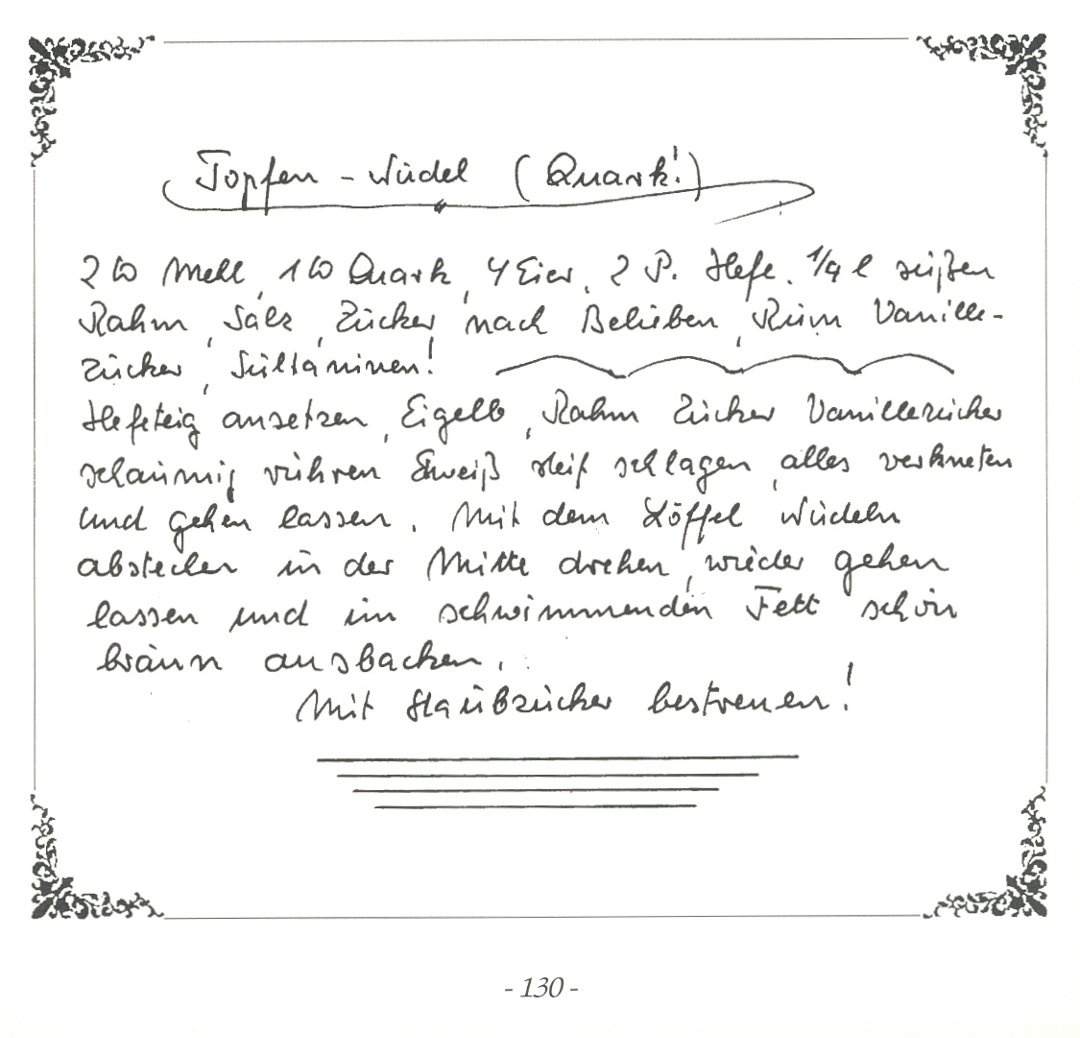 Topfen-Nudel (Quark!)
2 ℔ Mehl, 1 ℔ Quark, 4 Eier, 2 P. Hefe, 1/4 l süßen
Rahm, Salz, Zucker, nach Belieben, Rum Vanille-
zucker, Sultaninen!
Hefeteig ansetzen, Eigelb, Rahm Zucker Vanillezucker
schaumig rühren Eiweiß steif schlagen, alles verkneten
und gehen lassen. Mit dem Löffel Nudeln
abstechen in der Mitte drehen, wieder gehen
lassen und im schwimmenden Fett schön
braun ausbacken.
Mit Staubzucker bestreuen!
- 130 -